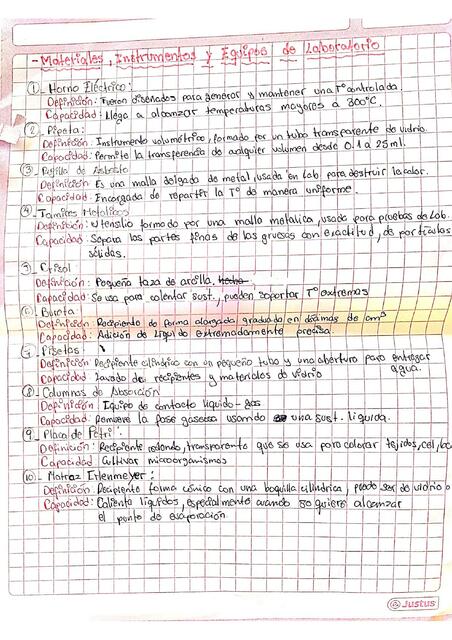 - Materiales, Instrumentos y Equipos de Laboratorio
1 Horno Eléctrico:
Definición: Fueron diseñados para generar y mantener una T° controlada.
Capacidad: Llega a alcanzar temperaturas mayores a 300°C.
2 Pipeta:
Definición: Instrumento volumétrico, formado por un tubo transparente de vidrio.
Capacidad: Permite la transferencia de cualquier volumen desde 0.1 a 25ml.
3 Rejilla de Asbesto
Definición: Es una malla delgada de metal, usada en Lab para destruir la calor.
Capacidad: Encargada de repartir la T° de manera uniforme.
4 Tamices Metálicos
Definición: Utensilio formado por una malla metalica, usada para pruebas de Lab.
Capacidad: Separa las partes finas de las gruesas con exactitud, de partículas
sólidas.
5- Crisol
Definición: Pequeña taza de arcilla,
Capacidad: Se usa para calentar sust., pueden soportar T° extremas
6- Bureta:
Definición: Recipiente de forma alargada graduada en décimas de cm³
Capacidad: Adición de líquido extremadamente precisa.
Pisetas:
Definición: Recipiente cilíndrico con un pequeño tubo y una abertura para entregar
agua.
Capacidad: lavado de recipientes y materiales de vidrio
8- Columnas de Absorción
Definición: Equipo de contacto líquido-gas
Capacidad: Remueve la fase gaseosa usando una sust. líquida.
9- Placa de Petri:
Definición: Recipiente redondo, transparente que se usa para colorar tejidos, cel,
Capacidad: Cultivar microorganismos
10- Matraz Erlenmeyer:
Definición: Recipiente forma cónico con una boquilla cilíndrica, puede ser de vidrio o
Capacidad: Calienta líquidos, especialmente cuando se quiere alcanzar
el punto de evaporación.
Justus